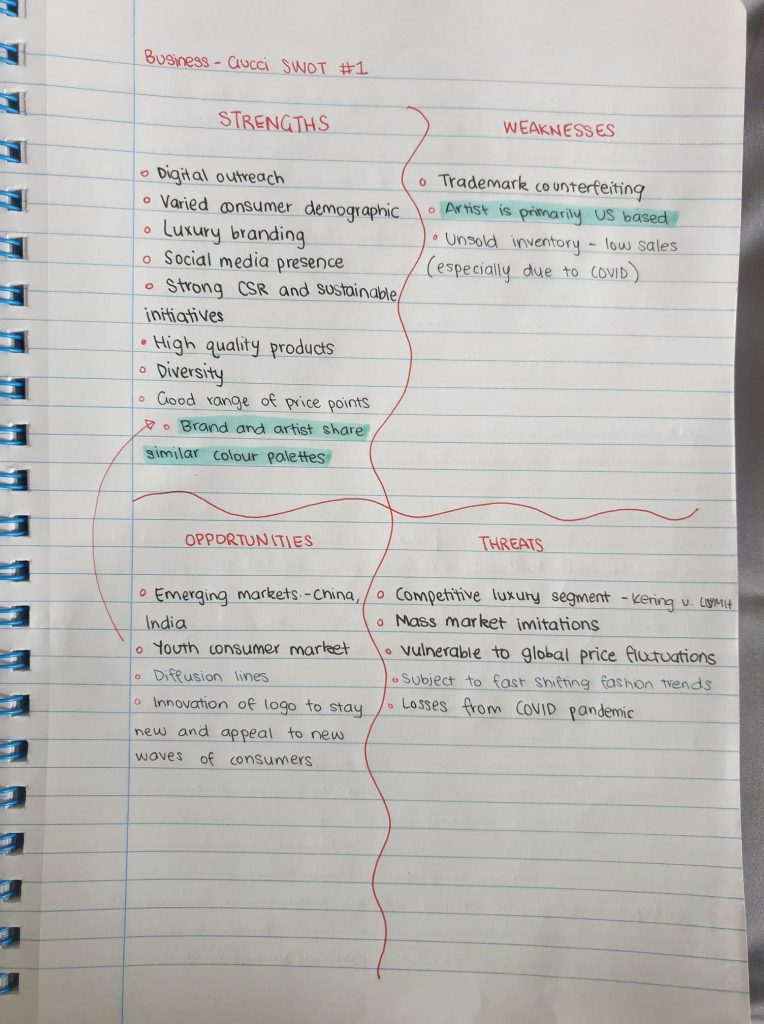 Business - Gucci SWOT #1
STRENGTHS
• Digital outreach
• Varied consumer demographic
• Luxury branding
• Social media presence
• Strong CSR and sustainable
initiatives
• High quality products
• Diversity
• Good range of price points
• Brand and artist share
similar colour palettes
WEAKNESSES
• Trademark counterfeiting
• Artist is primarily US based
• Unsold inventory - low sales
(especially due to COVID)
OPPORTUNITIES
• Emerging markets - China,
India
• Youth consumer market
• Diffusion lines
• Innovation of logo to stay
new and appeal to new
waves of consumers
THREATS
• Competitive luxury segment - Kering v. LVMH
• Mass market imitations
• Vulnerable to global price fluctuations
• Subject to fast shifting fashion trends
• Losses from COVID pandemic